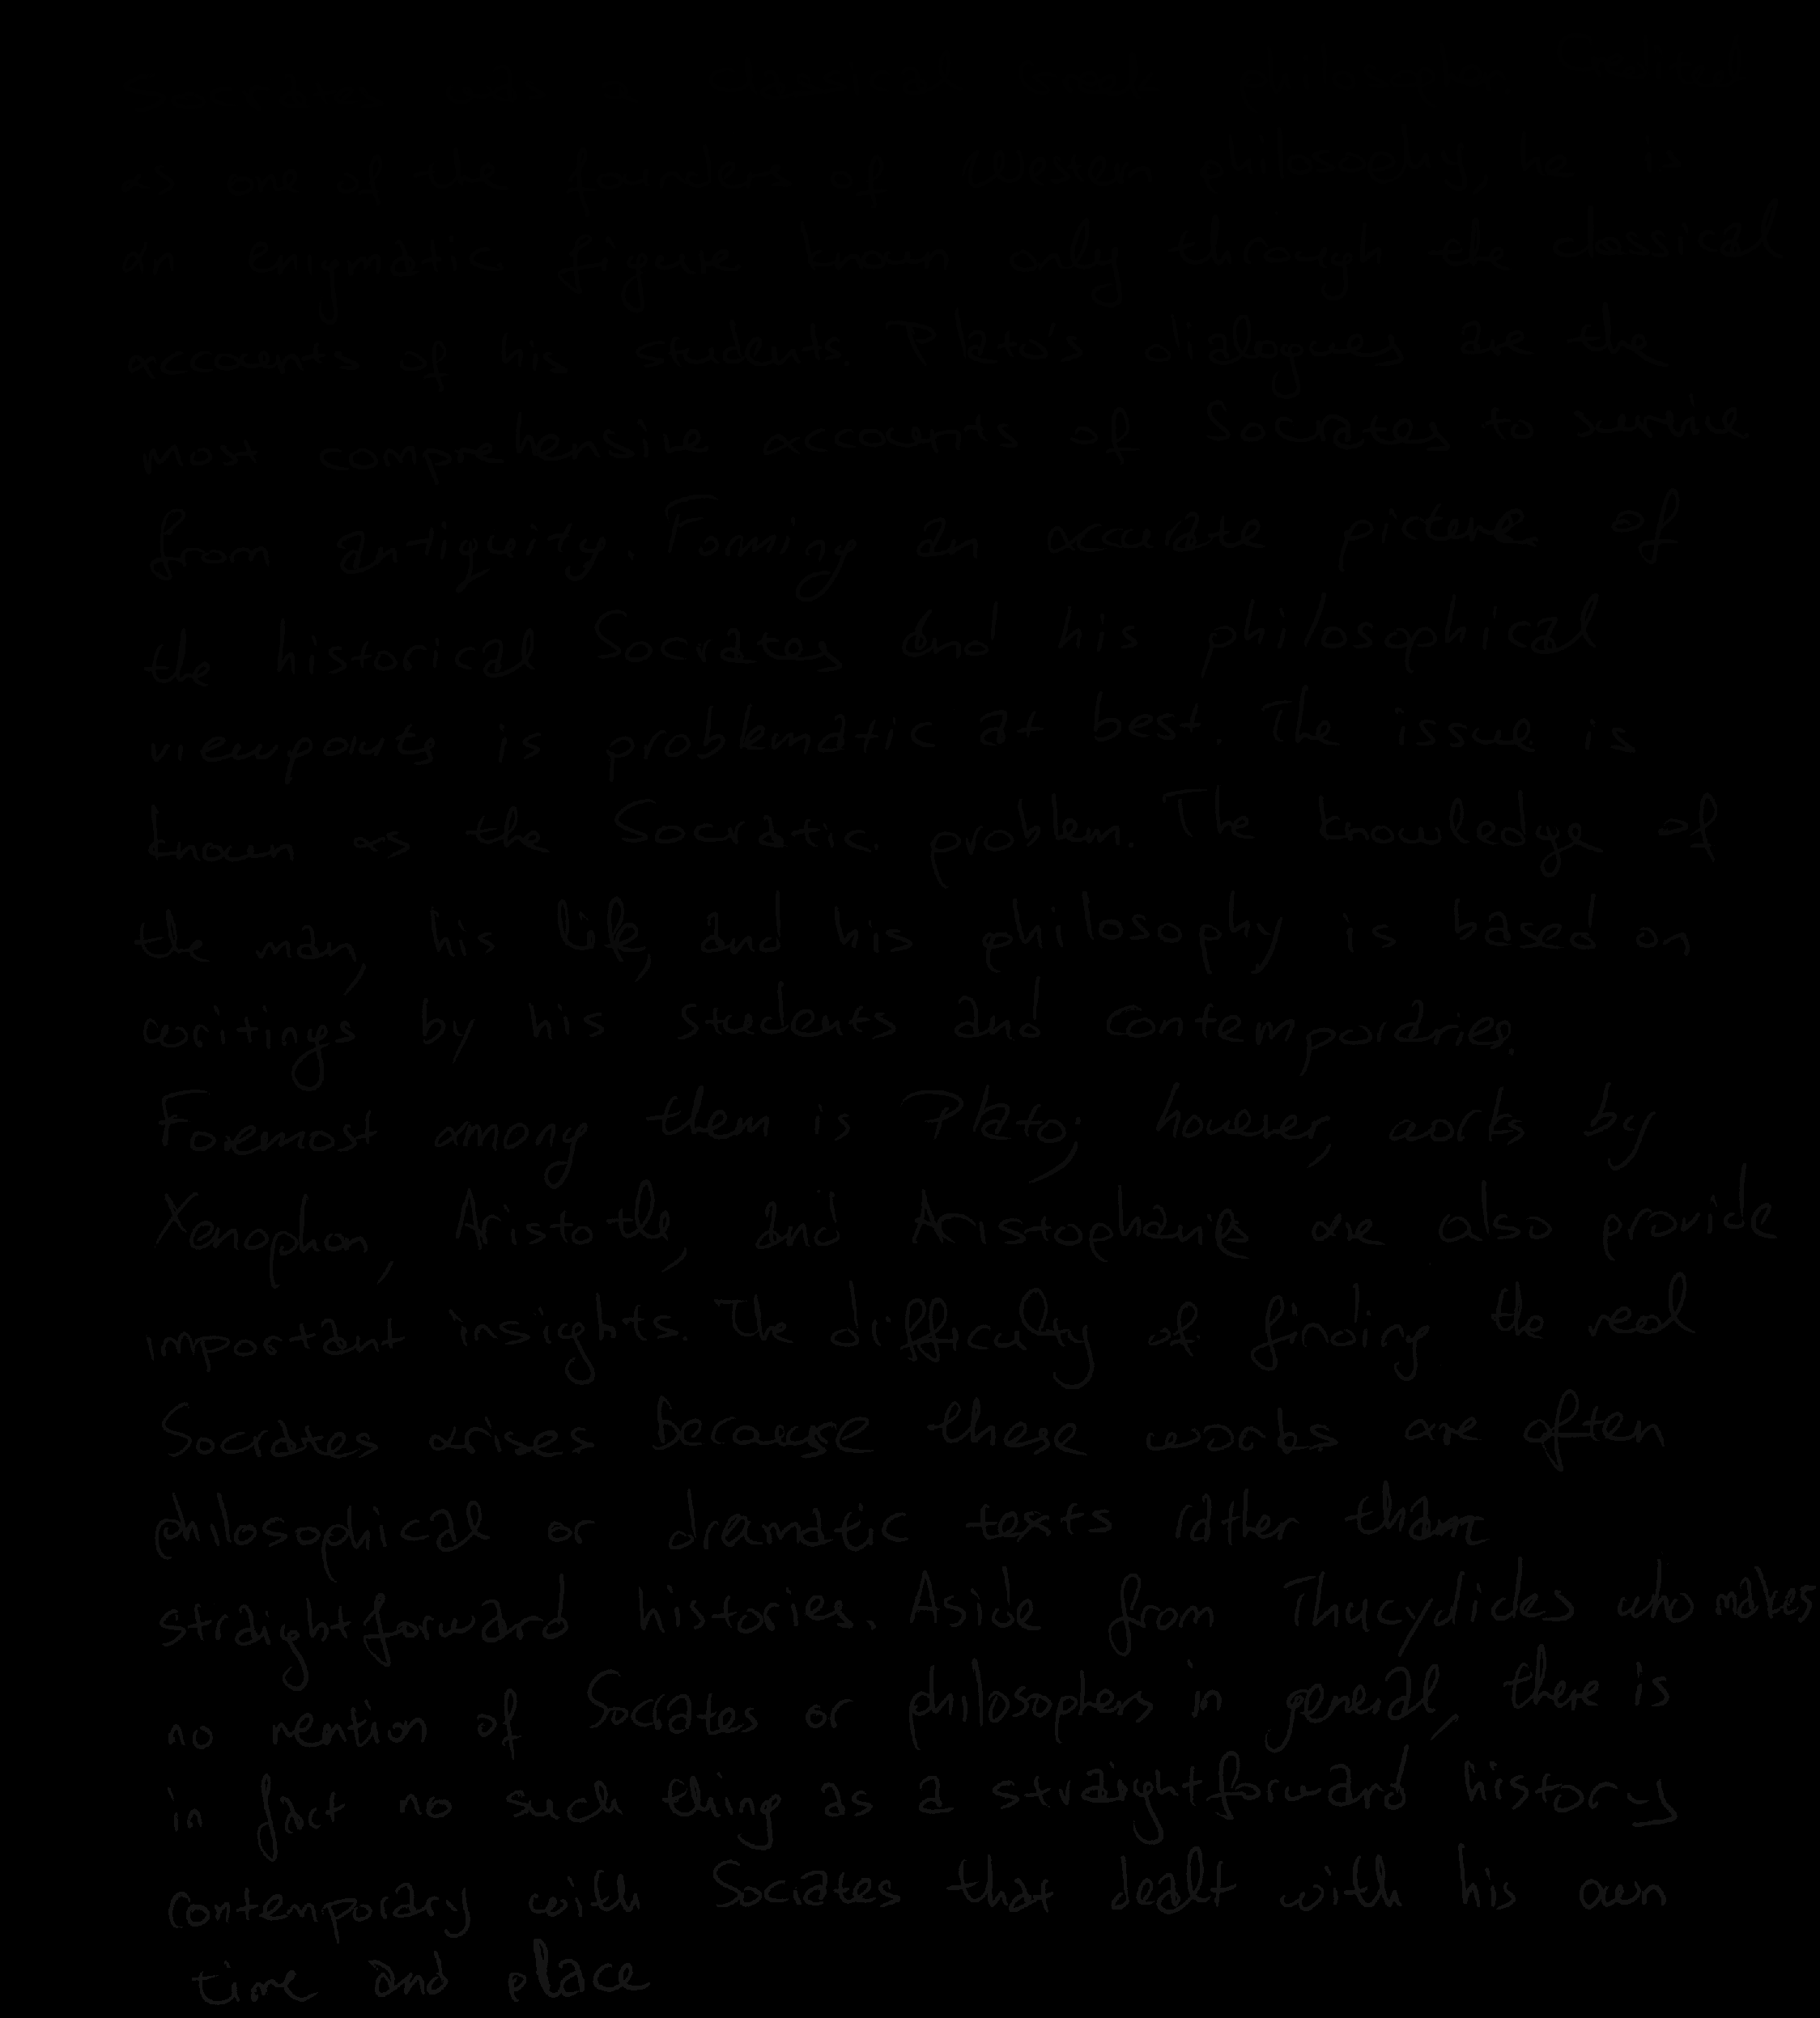 as one of the founders of Western philosophy, he is
an enigmatic figure known only through the classical
accounts of his students. Plato's dialogues are the
most comprehensive accounts of Socrates to survive
from antiquity. Forming an accurate picture of
the historical Socrates and his philosophical
viewpoints is problematic at best. The issue is
known as the Socratic problem. The knowledge of
the man, his life, and his philosophy is based on
writings by his students and contemporaries.
Foremost among them is Plato; however, works by
Xenophon, Aristotle, and Aristophanes are also provide
important insights. The difficulty of finding the real
Socrates arises because these works are often
philosophical or dramatic texts rather than
straightforward histories. Aside from Thucydides who makes
no mention of Socrates or philosophers in general, there is
in fact no such thing as a straightforward history
contemporary with Socrates that dealt with his own
time and place